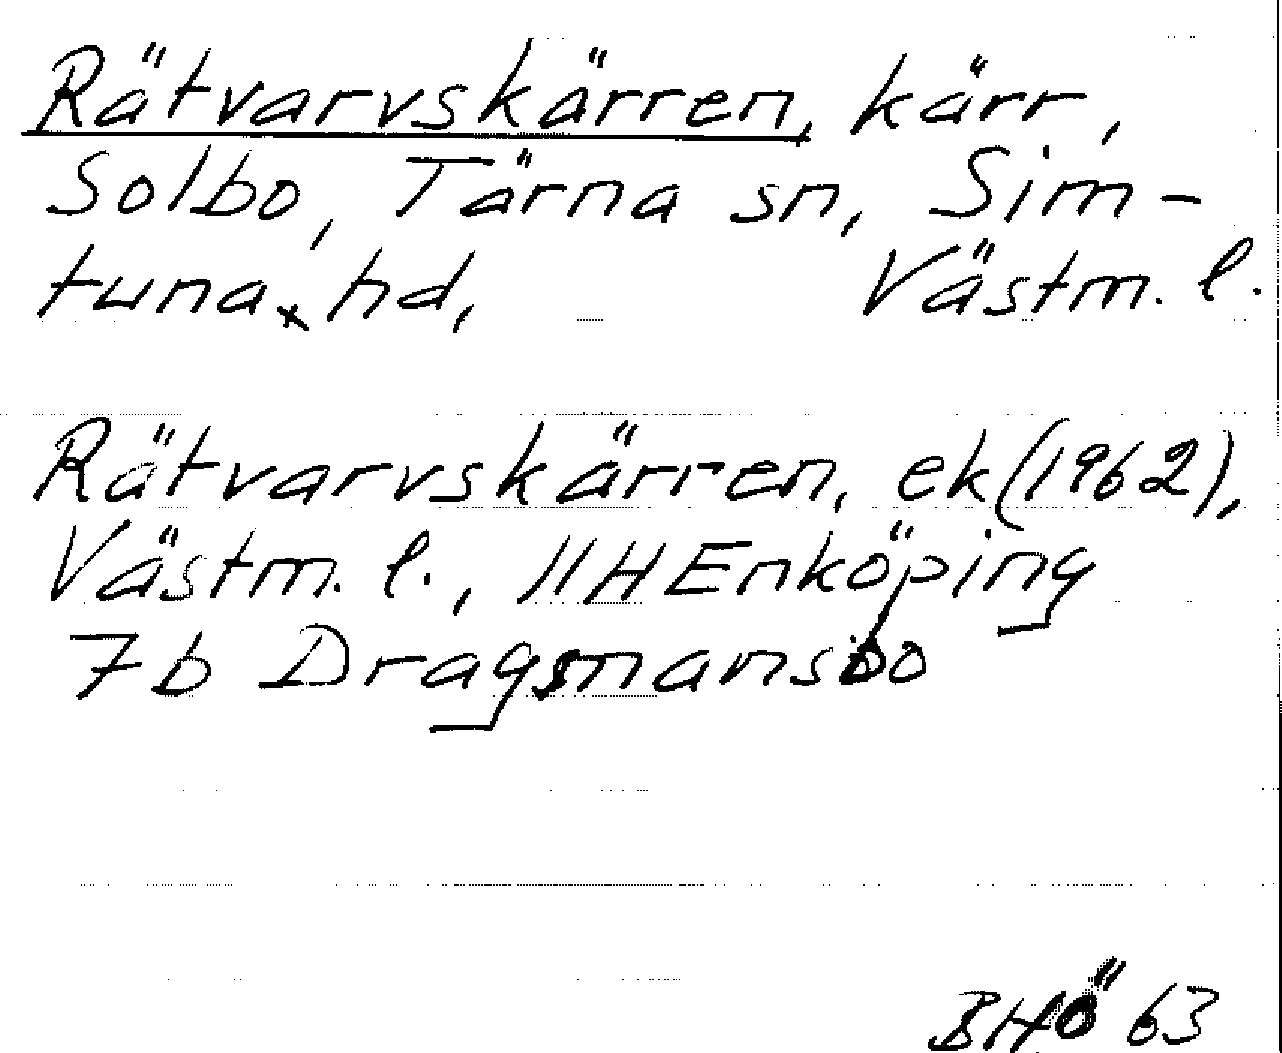 Rätvarvskärren, kärr,
Solbo, Tärna sn, Sim-
tuna hd, Västm. l.
Rätvarvskärren, ek (1962),
Västm. l., 11H Enköping
7b Dragmansbo
BHÖ 63